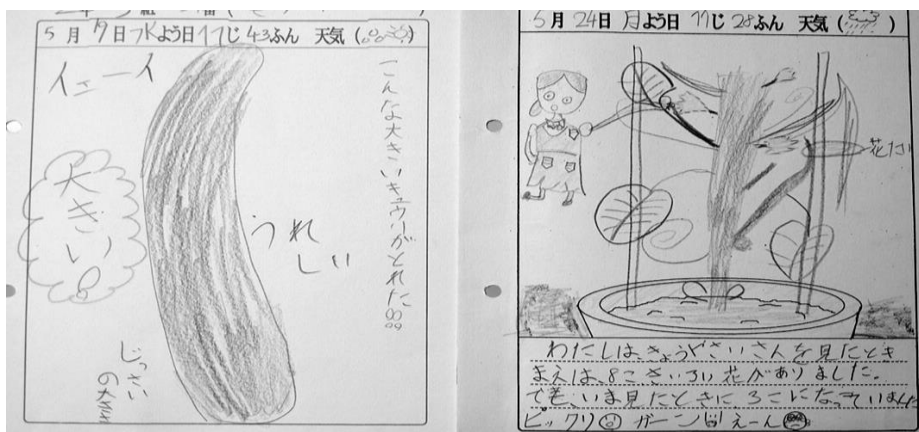 5月9日水よう日11じ43ふん 天気
こんな大きいキュウリがとれた
イェーイ
大きい
うれ
しい
じっさい
の大きさ
5月24日月よう日11じ28ふん 天気
花だん
わたしは、きゅうやさいさんを見たとき
まえは、8こきいろい花がありました。
でも、いま見たときに3こになっていました
ビックリ ガーン えーん